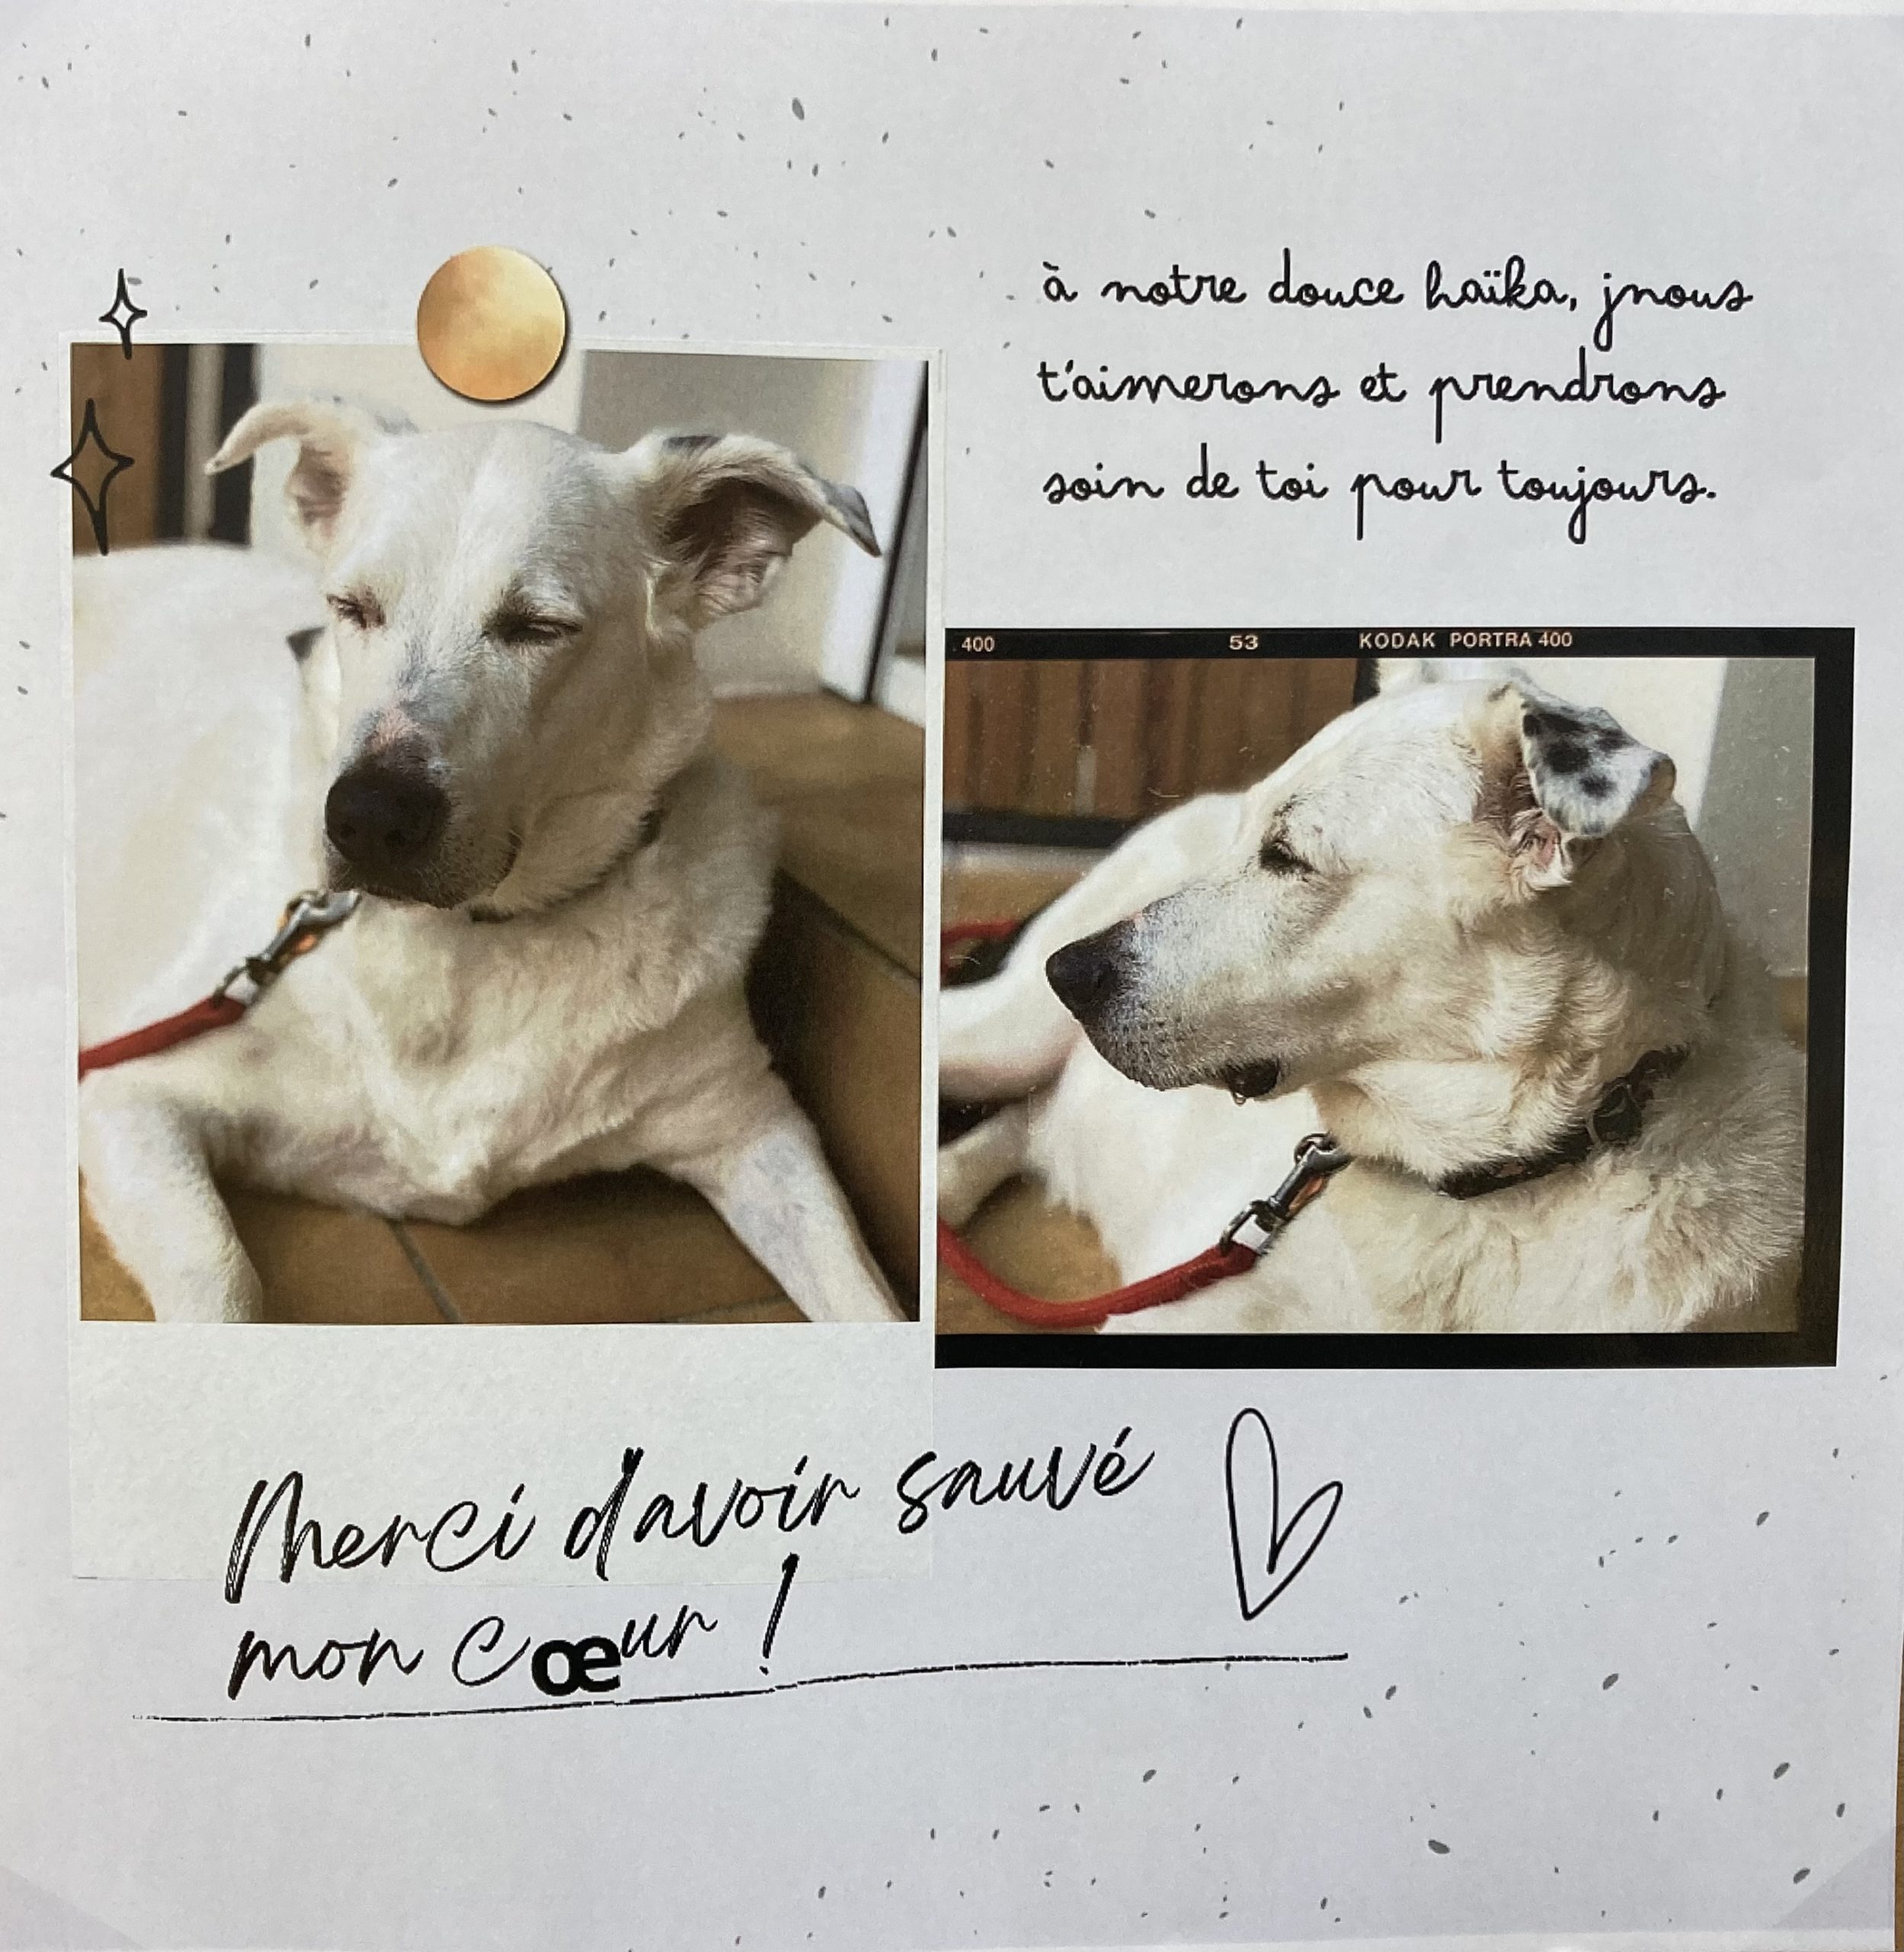 à notre douce haïka, jnous
t'aimerons et prendrons
soin de toi pour toujours.
400 53 KODAK PORTRA 400
Merci d'avoir sauvé
mon cœur !